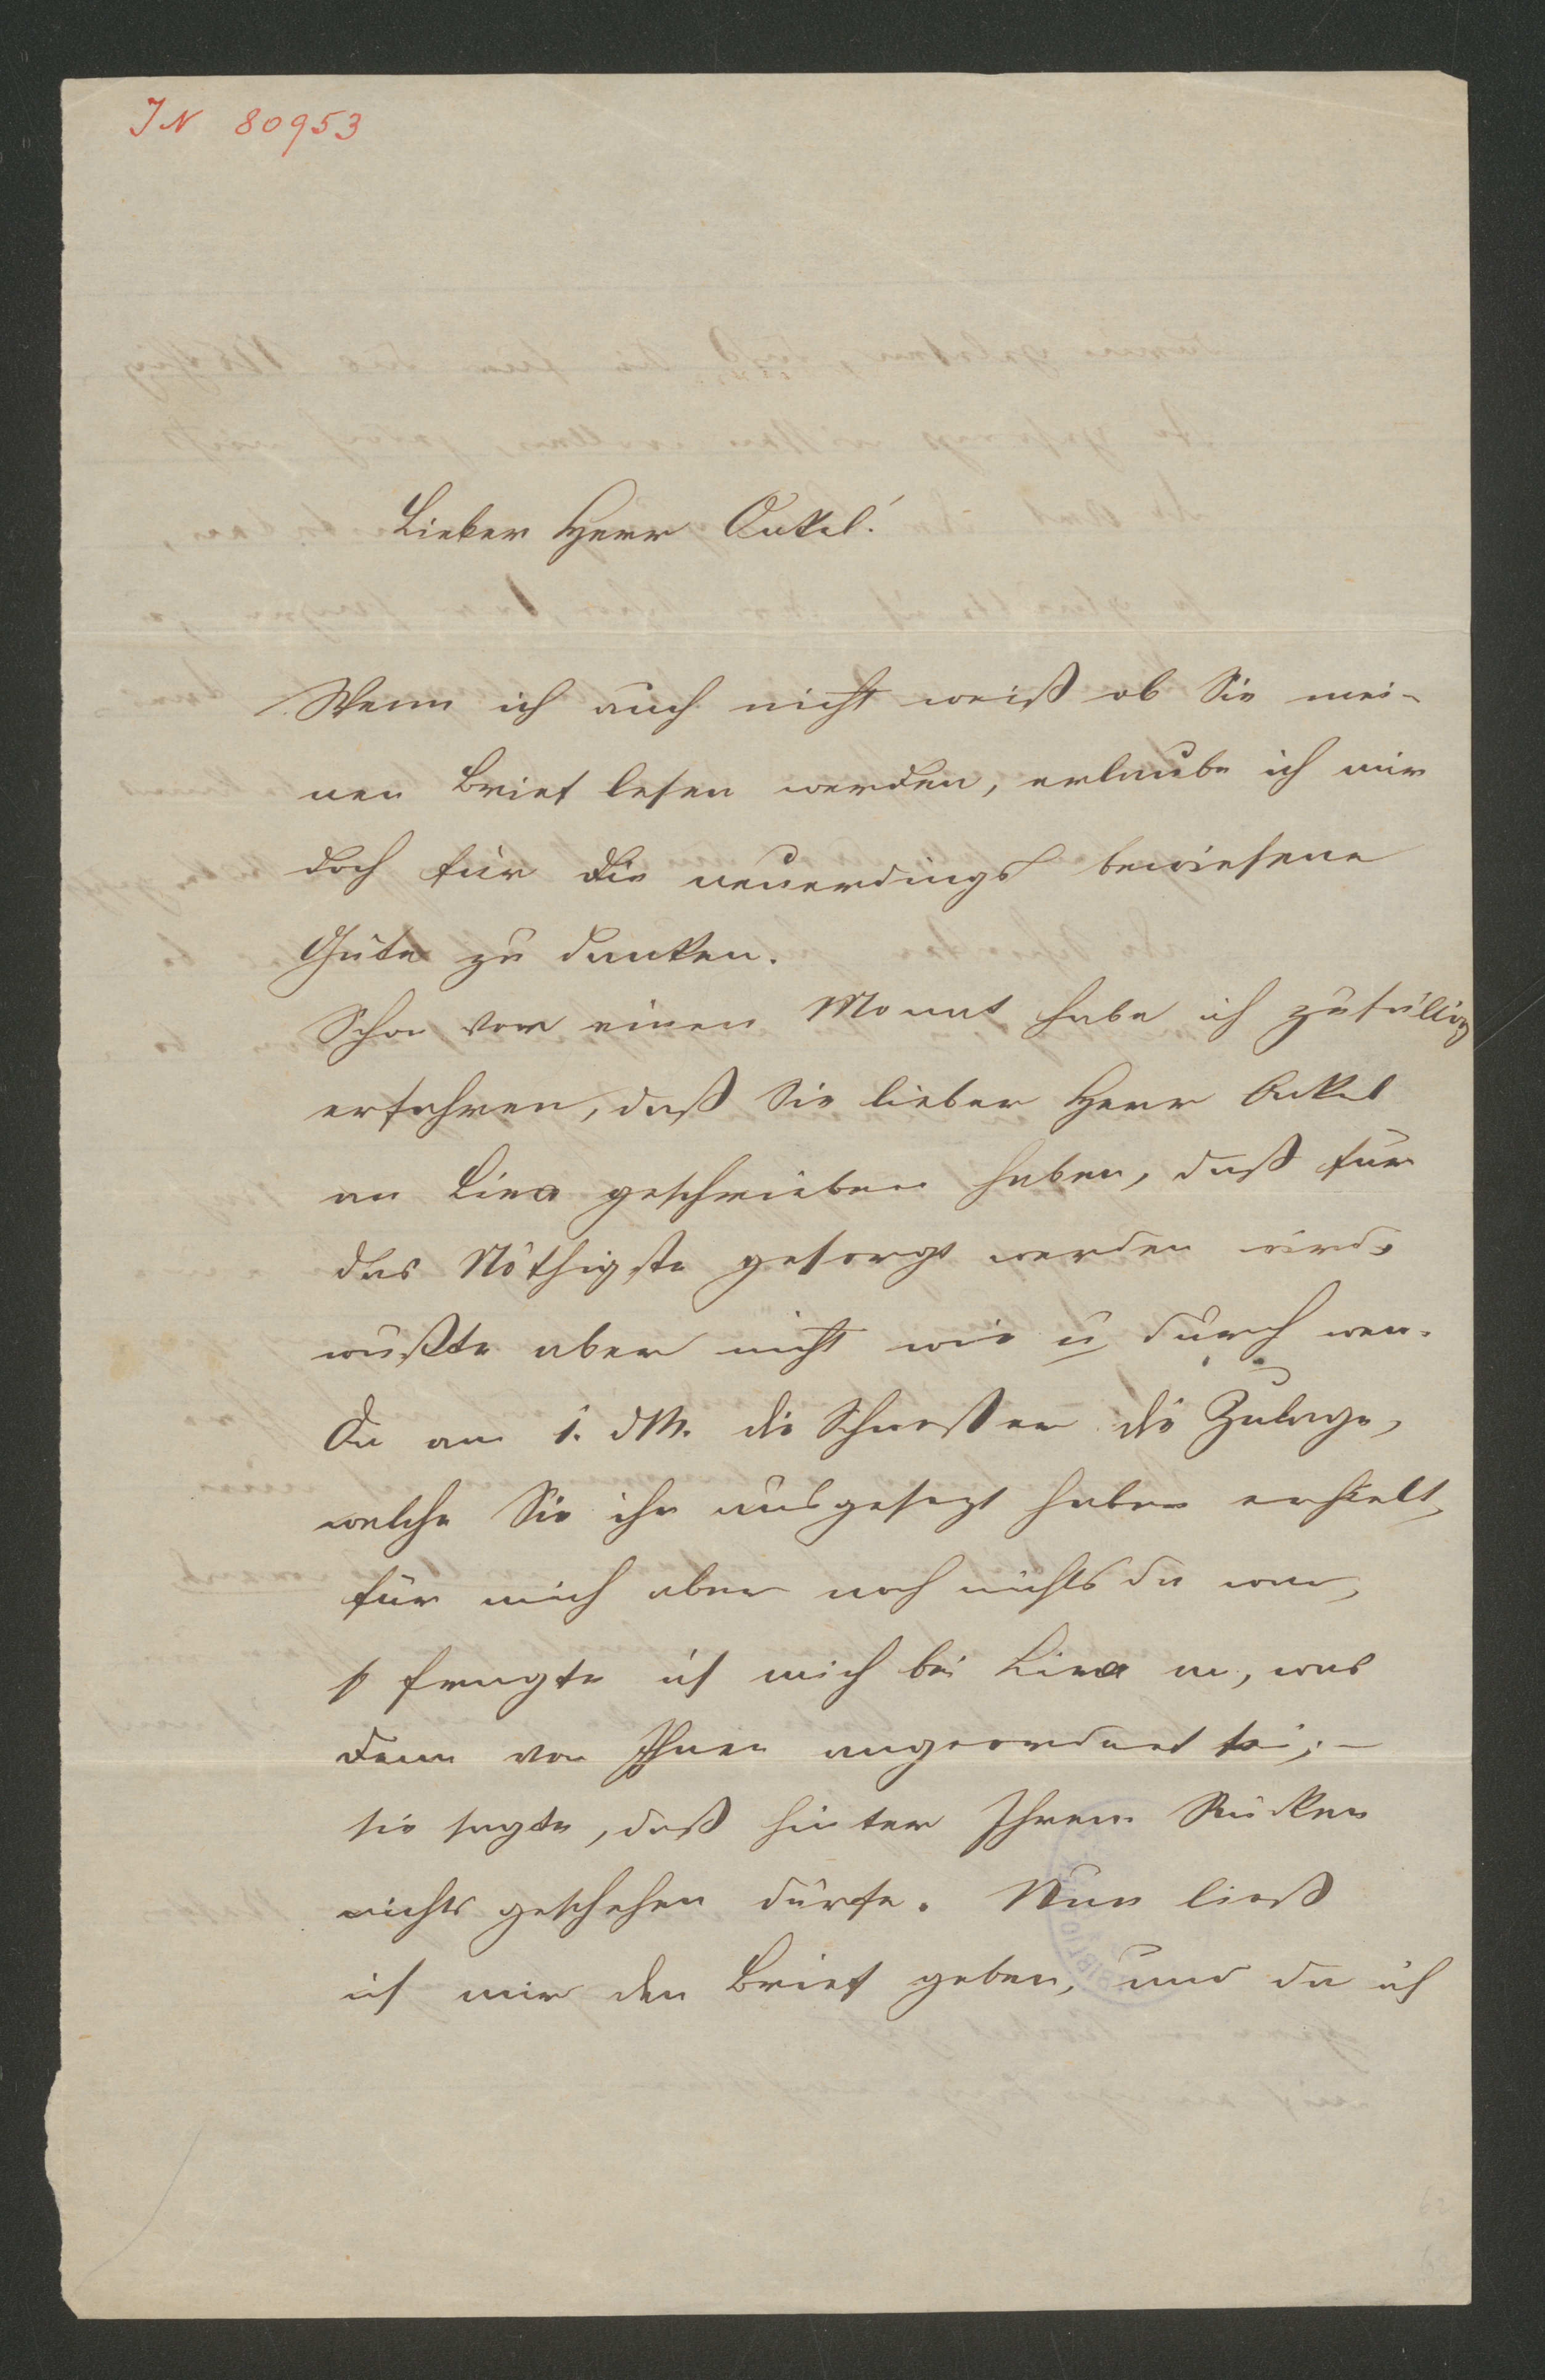 IN 80953
Lieber Herr Onkel!
Wenn ich auch nicht weiß ob Sie mei-
nen Brief lesen werden, erlaube ich mir
doch für die neuerdings bewiesene
Güte zu danken.
Schon vor einen Monat habe ich zufällig
erfahren, daß Sie lieber Herr Onkel
an Lina geschrieben haben, daß für
das Nöthigste gesorgt werden wird,
wußte aber nicht wie u durch wen.
Da am 1. dM. die Schwester die Zulage,
welche Sie ihr ausgesezt haben erhielt,
für mich aber noch nichts da war,
so fragte ich mich bei Lina an, was
denn von Ihnen angeordnet sei; –
sie sagte, daß hinter Ihrem Rücken
nichts geschehen dürfe. Nun ließ
ich mir den Brief geben, und da ich